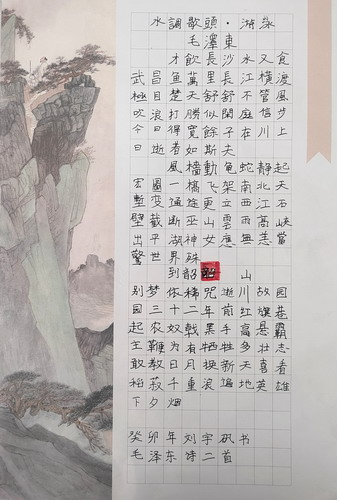 水調歌頭·游泳
毛澤東
才飲長沙水又食
武昌魚萬里長江橫渡
極目楚天舒不管風
吹浪打勝似閑庭信步
今日得寬餘子在川上
曰逝者如斯夫
風檣動龜蛇靜起
宏圖一橋飛架南北天
塹變通途更立西江石
壁截斷巫山雲雨高峽
出平湖神女應無恙當
驚世界殊
到韶山
別夢依稀咒逝川故園
三十二年前紅旗卷
起農奴戟黑手高懸霸
主鞭為有犧牲多壯志
敢教日月換新天喜看
稻菽千重浪遍地英雄
下夕烟
癸卯年刘宇书
毛泽东诗二首